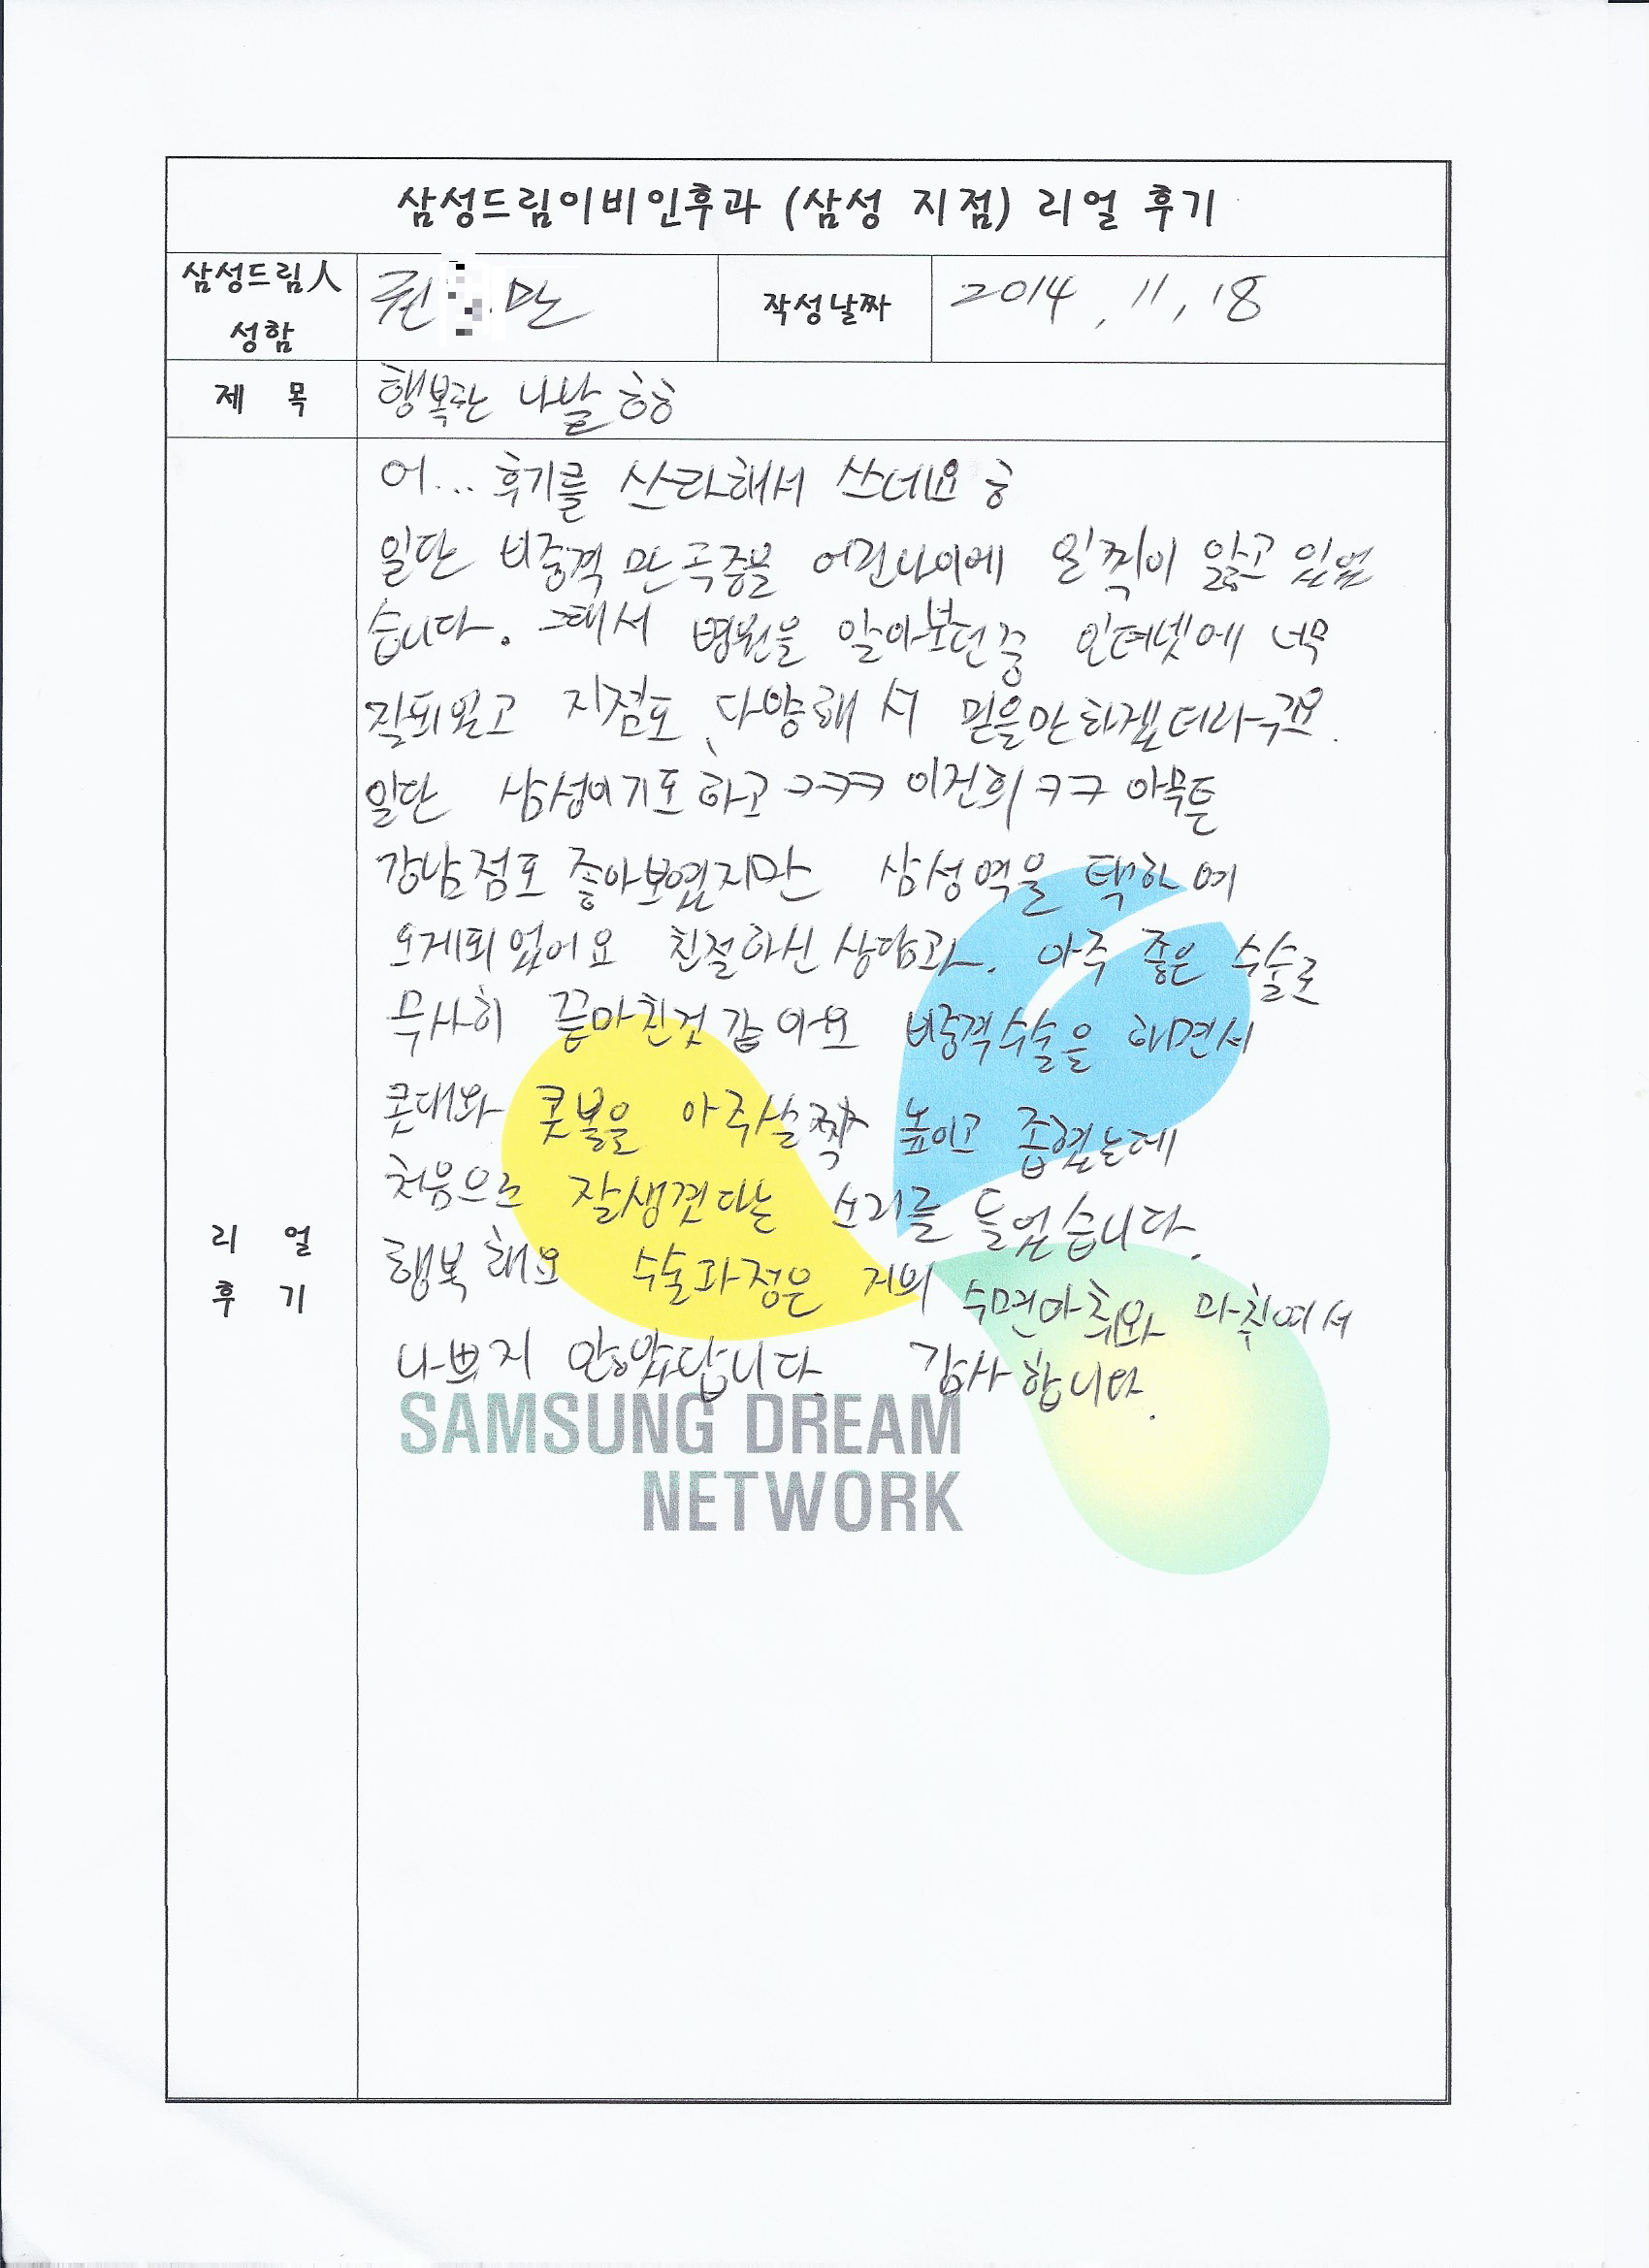 삼성드림이비인후과 (삼성 지점) 리얼 후기
삼성드림人 성함 권 만 작성날짜 2014. 11, 18
제 목 행복한 나날 ㅎㅎ
어... 후기를 쓰라해서 쓰네요 ㅎ
일단 비중격 만곡증을 어린나이에 일찍이 앓고 있었
습니다. 그래서 병원을 알아보던중 인터넷에 너무
잘되있고 지점도 다양해서 믿을만하겠더라구요.
일단 삼성이기도 하고 ㅋㅋㅋ 이건희 ㅋㅋ 아무튼
강남점도 좋아보였지만 삼성역을 택하여
오게되었어요 친절하신 상담과. 아주 좋은 수술로
무사히 끝마친것 같아요 비중격수술을 하면서
콧대와 콧볼을 아주살짝 높이고 좁혔는데
처음으로 잘생겼다는 소리를 들었습니다.
행복해요 수술과정은 저의 수면마취와 마취여서
나쁘지 않았답니다. 감사합니다.
리 얼
후 기
SAMSUNG DREAM
NETWORK